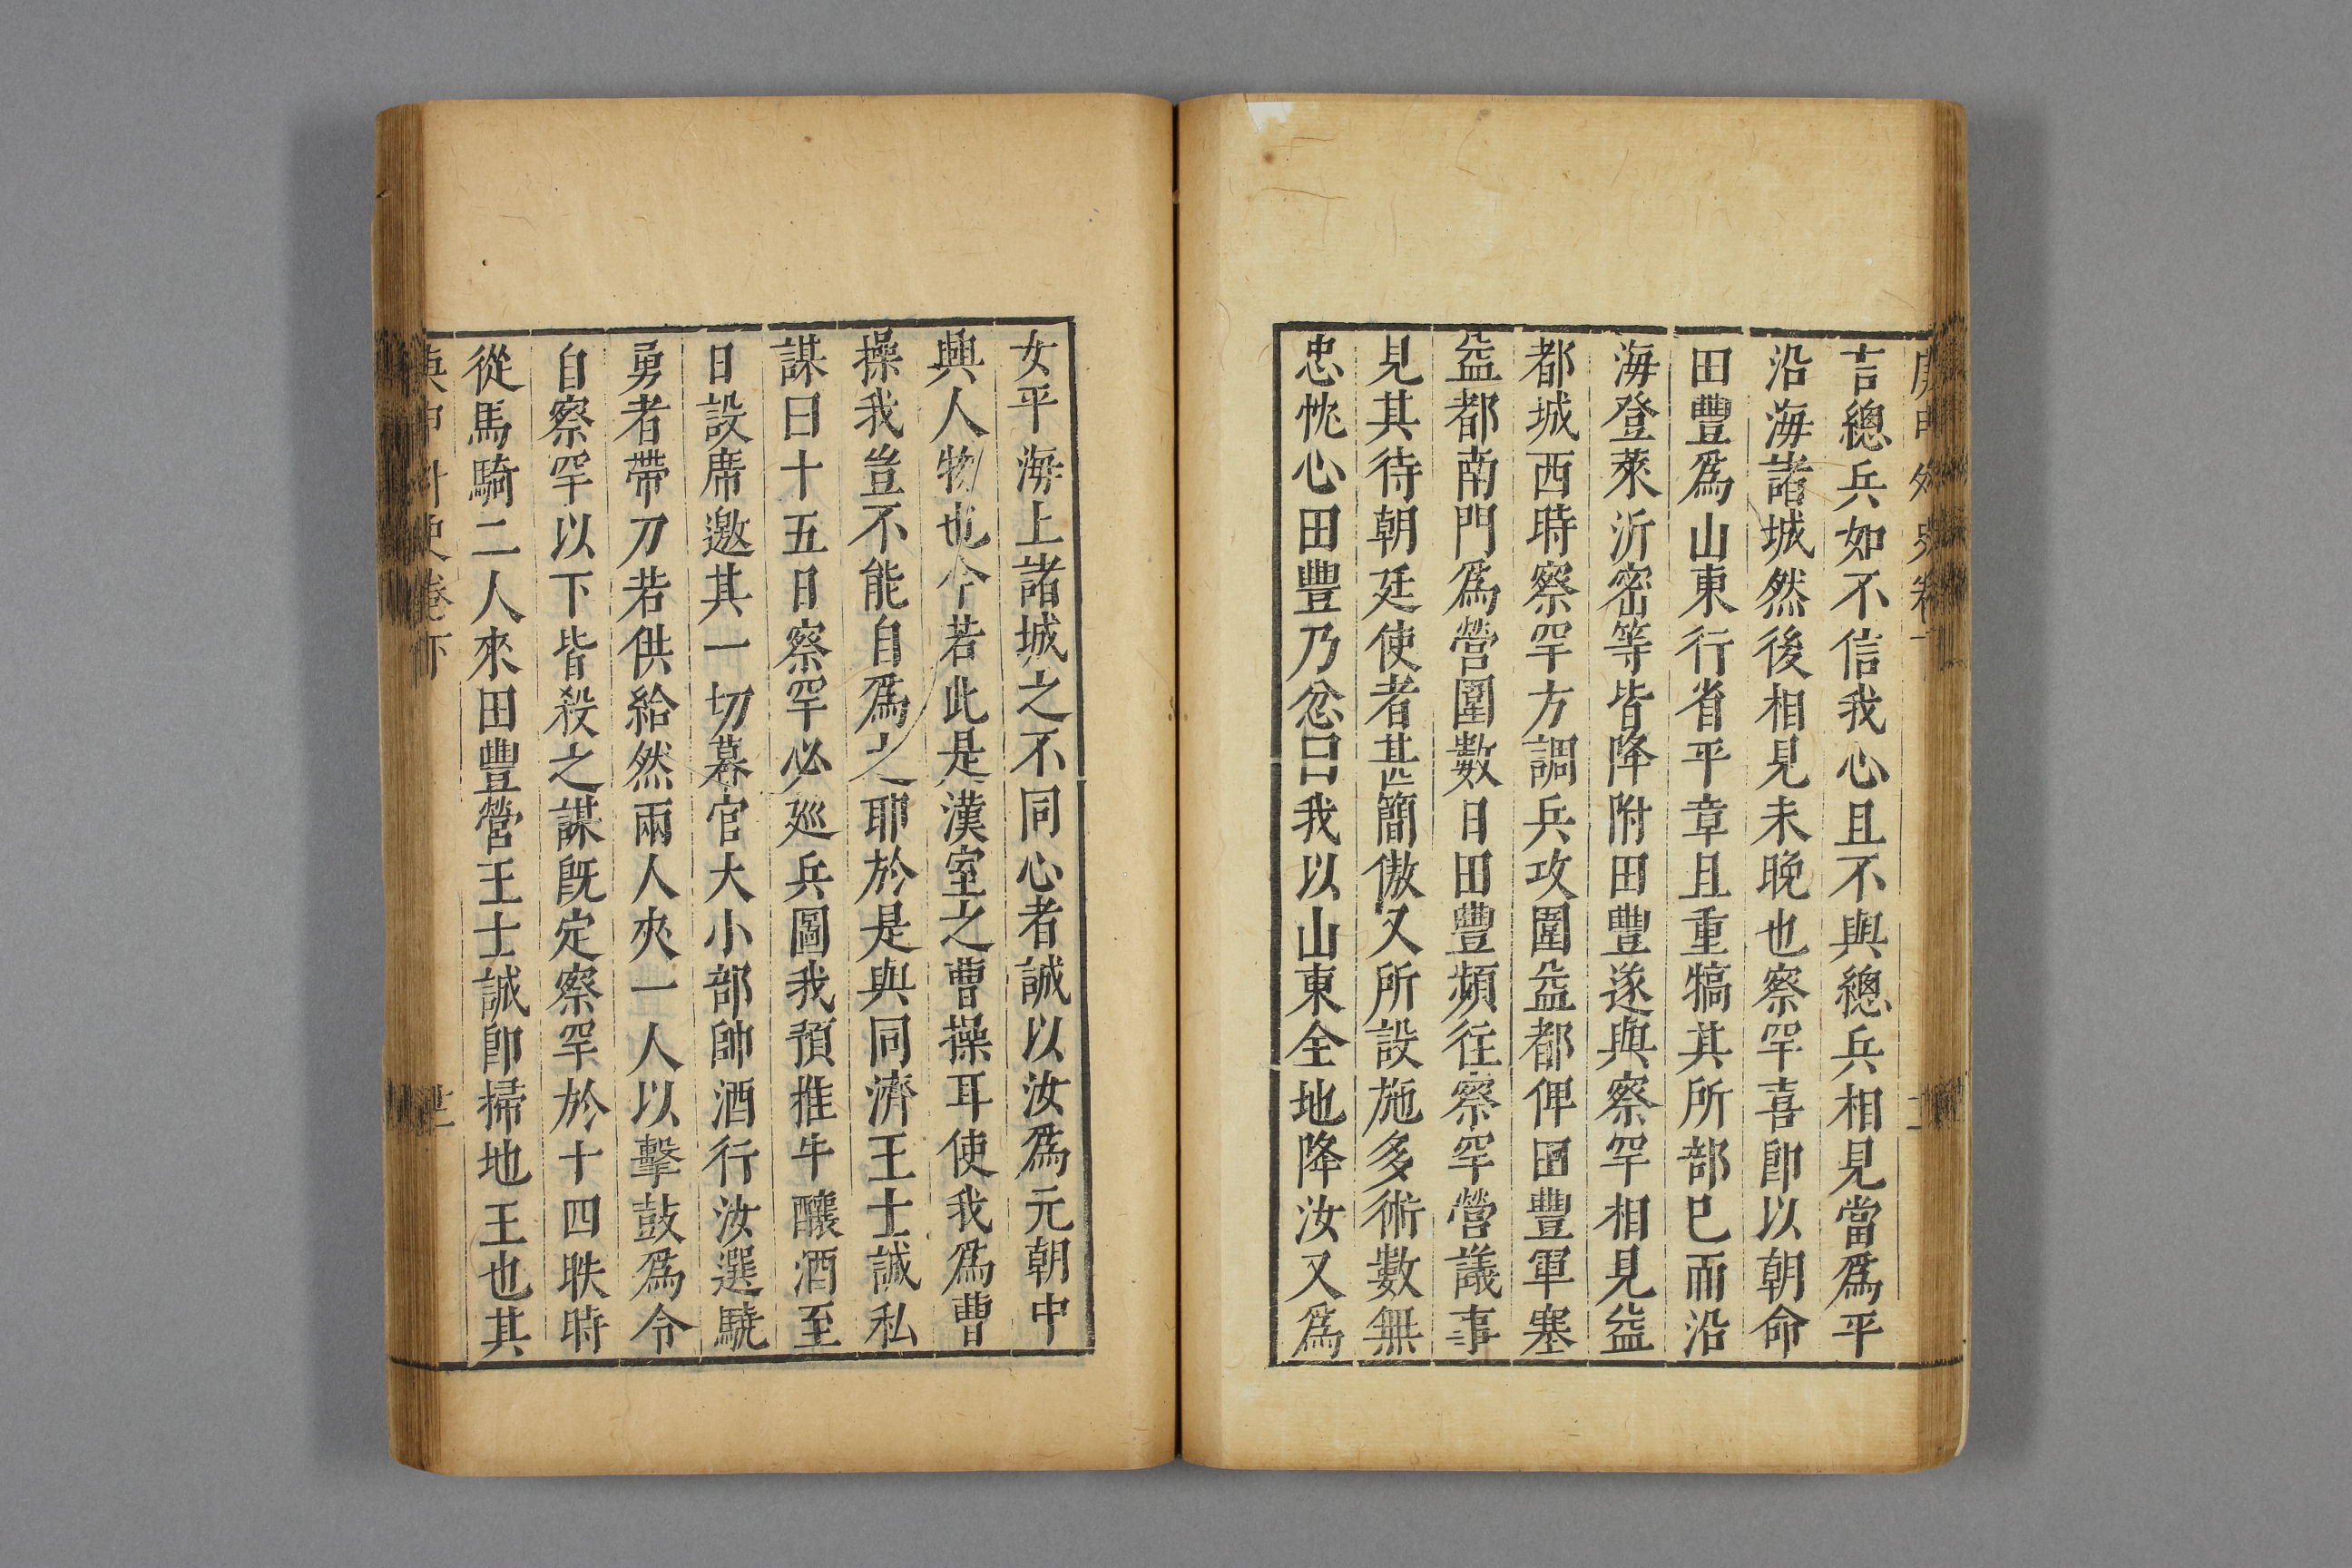 言總兵如不信我心且不與總兵相見當爲平
沿海諸城然後相見未晚也察罕喜卽以朝命
田豐爲山東行省平章且重犒其所部已而沿
海登萊沂密等皆降附田豐遂與察罕相見益
都城西時察罕方調兵攻圍益都俾田豐軍塞
益都南門爲營圍數日田豐頻往察罕營議事
見其待朝廷使者甚簡傲又所設施多術數無
忠忱心田豐乃忿曰我以山東全地降汝又爲
女平海上諸城之不同心者誠以汝爲元朝中
興人物也今若此是漢室之曹操耳使我爲曹
操我豈不能自爲之耶於是與同濟王士誠私
謀曰十五日察罕必廵兵圖我預推牛釀酒至
日設席邀其一切幕官大小部帥酒行汝選驍
勇者帶刀若供給然兩人夾一人以擊鼓爲令
自察罕以下皆殺之謀既定察罕於十四昳時
從馬騎二人來田豐營王士誠卽掃地王也其
庚申外史卷下